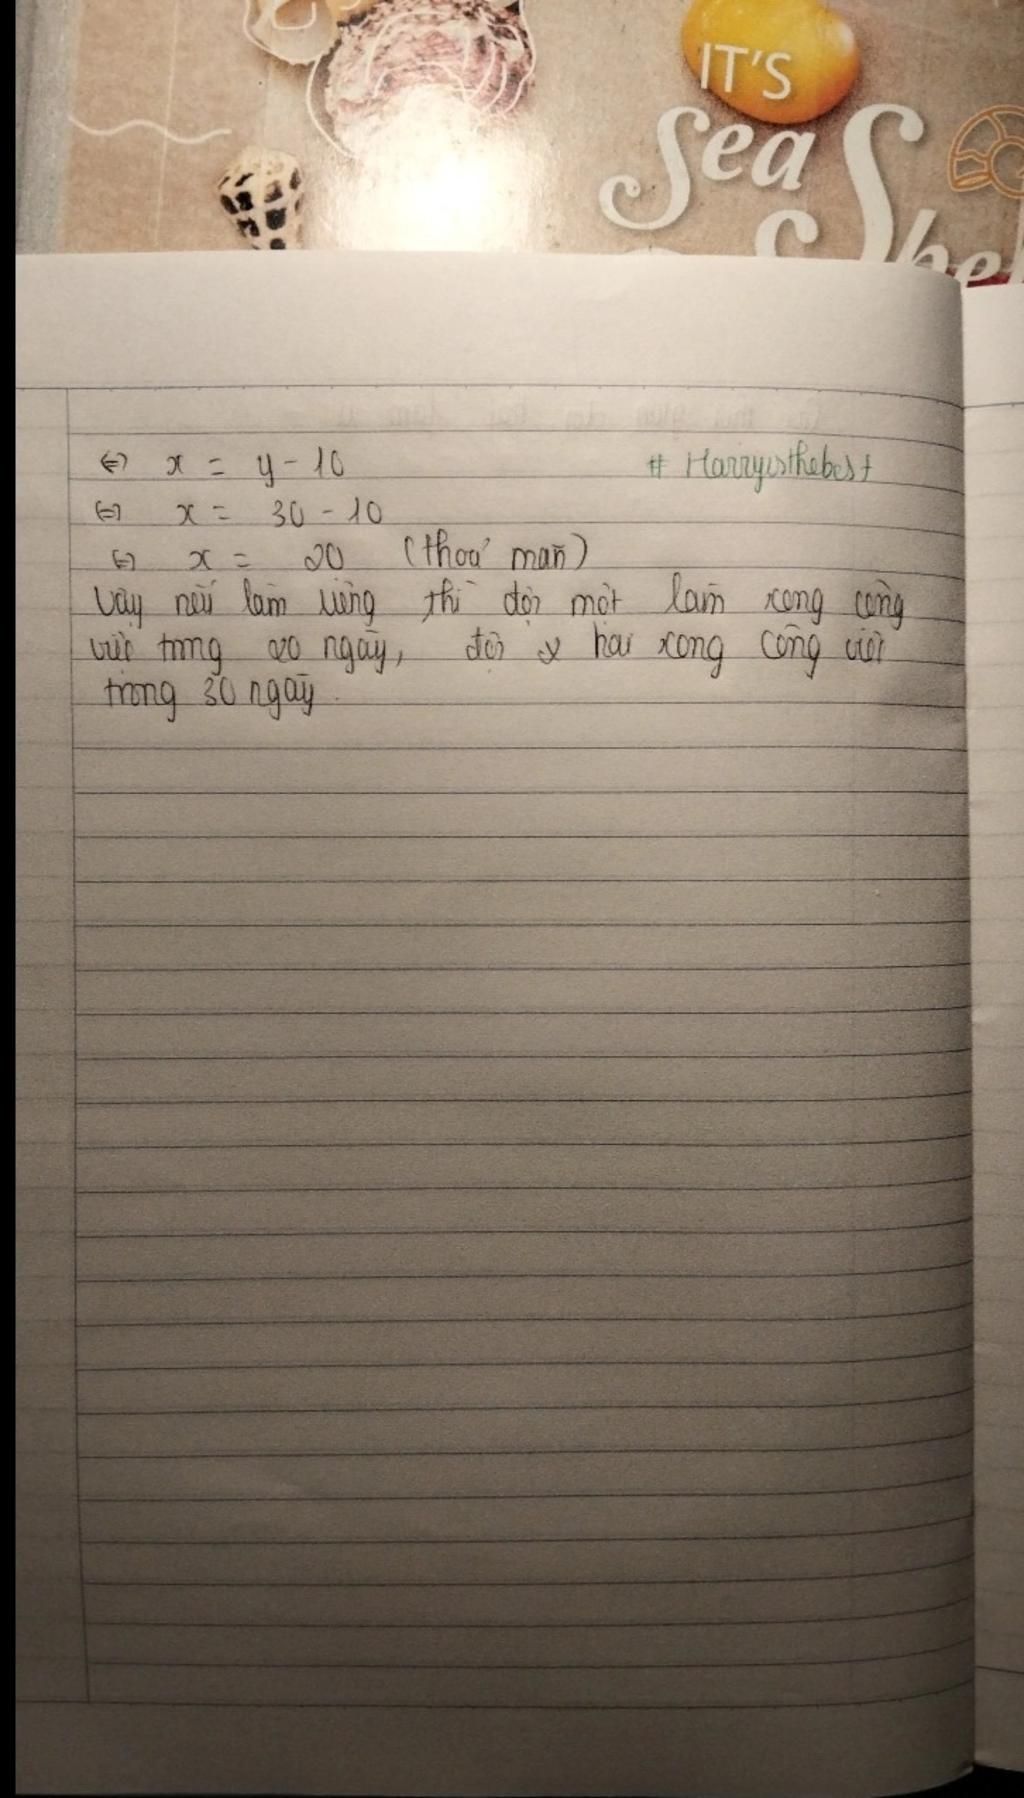 IT'S
Sea
Shel
S
⇔ x = y - 10 # Harryisthebest
⇔ x = 30 - 10
⇔ x = 20 (thoả mãn)
Vậy nếu làm riêng thì đội một làm xong công
việc trong 20 ngày, đội hai xong công việc
trong 30 ngày.